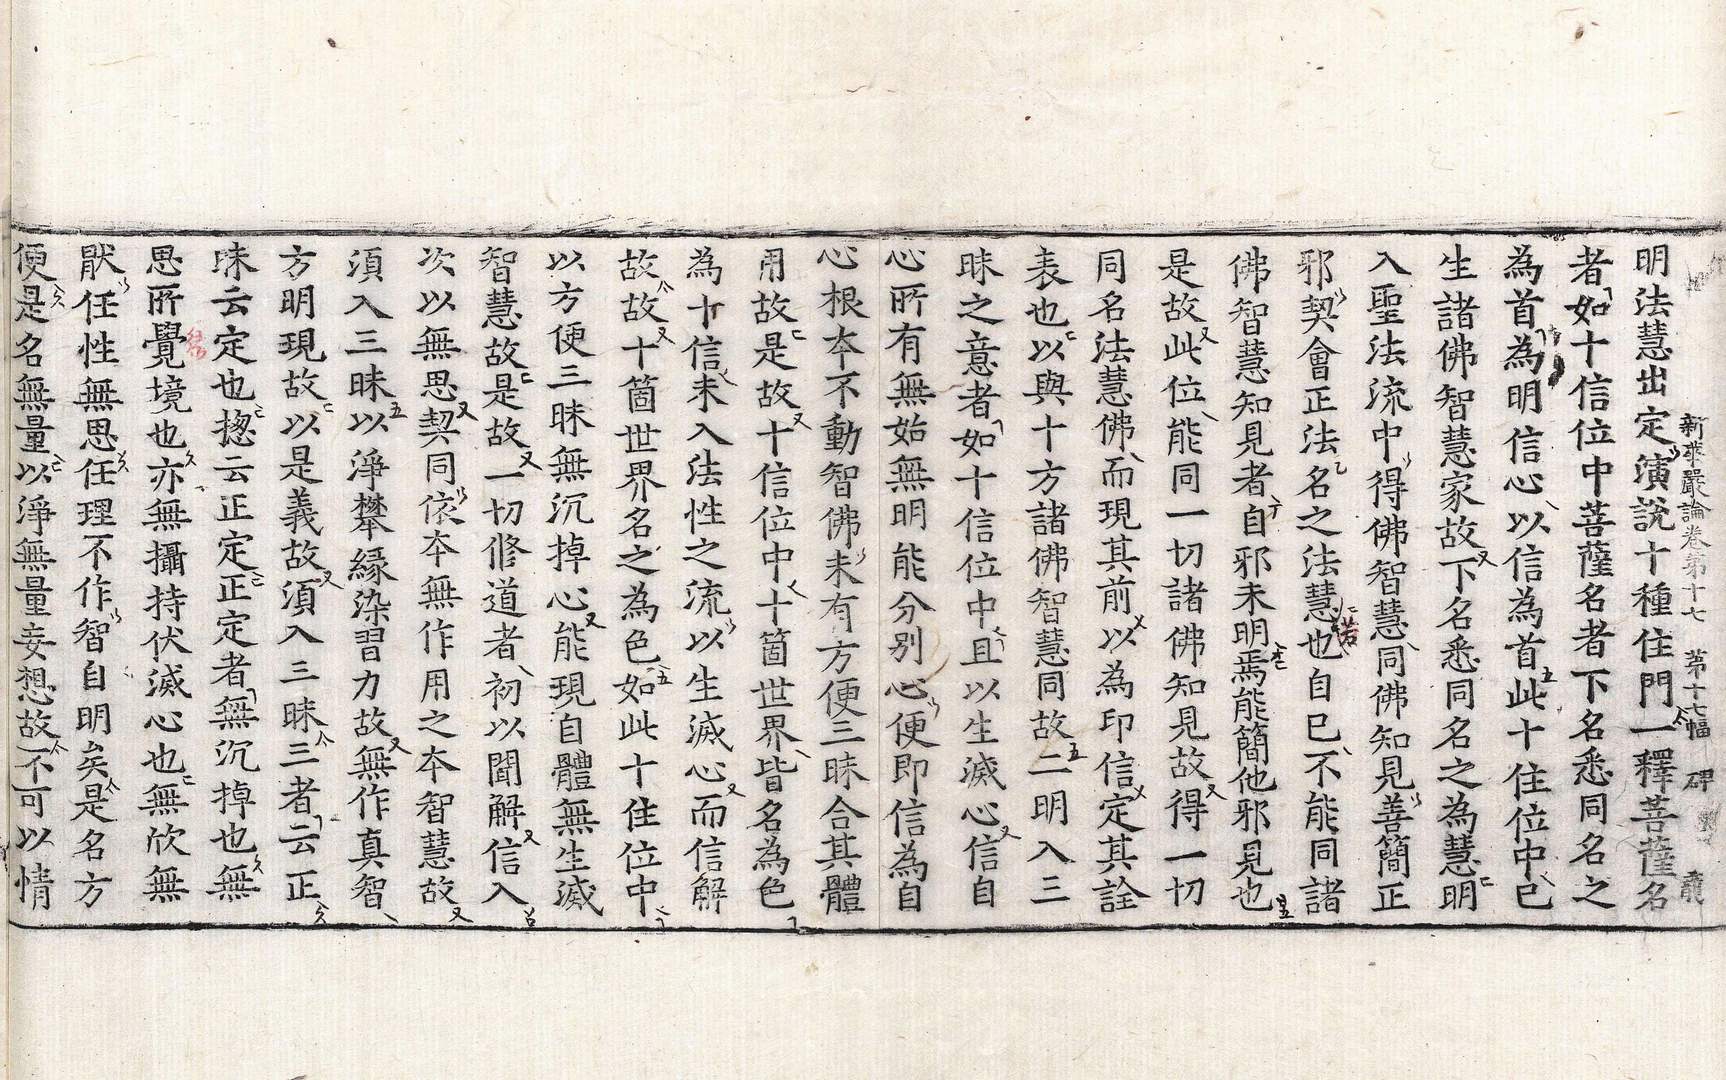 新華嚴論卷第十七　第十七幅　碑
明法慧出定演說十種住門一釋菩薩名
者如十信位中菩薩名者下名悉同名之
為首為明信心以信為首此十住位中已
生諸佛智慧家故下名悉同名之為慧明
入聖法流中得佛智慧同佛知見善簡正
邪契會正法名之法慧也自已不能同諸
佛智慧知見者自邪未明焉能簡他邪見也
是故此位能同一切諸佛知見故得一切
同名法慧佛而現其前以為印信定其詮
表也以與十方諸佛智慧同故二明入三
昧之意者如十信位中且以生滅心信自
心所有無始無明能分別心便即信為自
心根本不動智佛未有方便三昧合其體
用故是故十信位中十箇世界皆名為色
為十信未入法性之流以生滅心而信解
故故十箇世界名之為色如此十住位中
以方便三昧無沉掉心能現自體無生滅
智慧故是故一切修道者初以聞解信入
次以無思契同依本無作用之本智慧故
須入三昧以淨攀緣染習力故無作真智
方明現故以是義故須入三昧三者云正
昧云定也揔云正定正定者無沉掉也無
思所覺境也亦無攝持伏滅心也無欣無
猒任性無思任理不作智自明矣是名方
便是名無量以淨無量妄想故不可以情